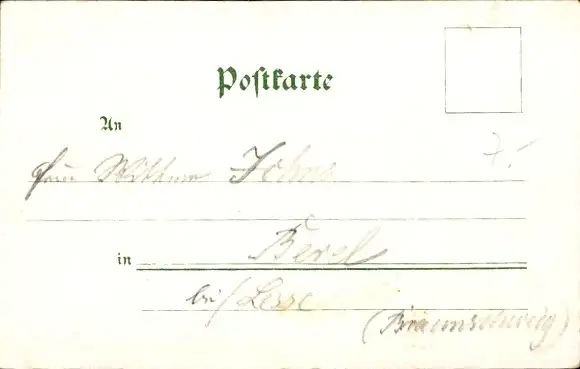 Postkarte
An
Frau Wittwe Johns
in Berel
bei / Lesse
(Braunschweig)